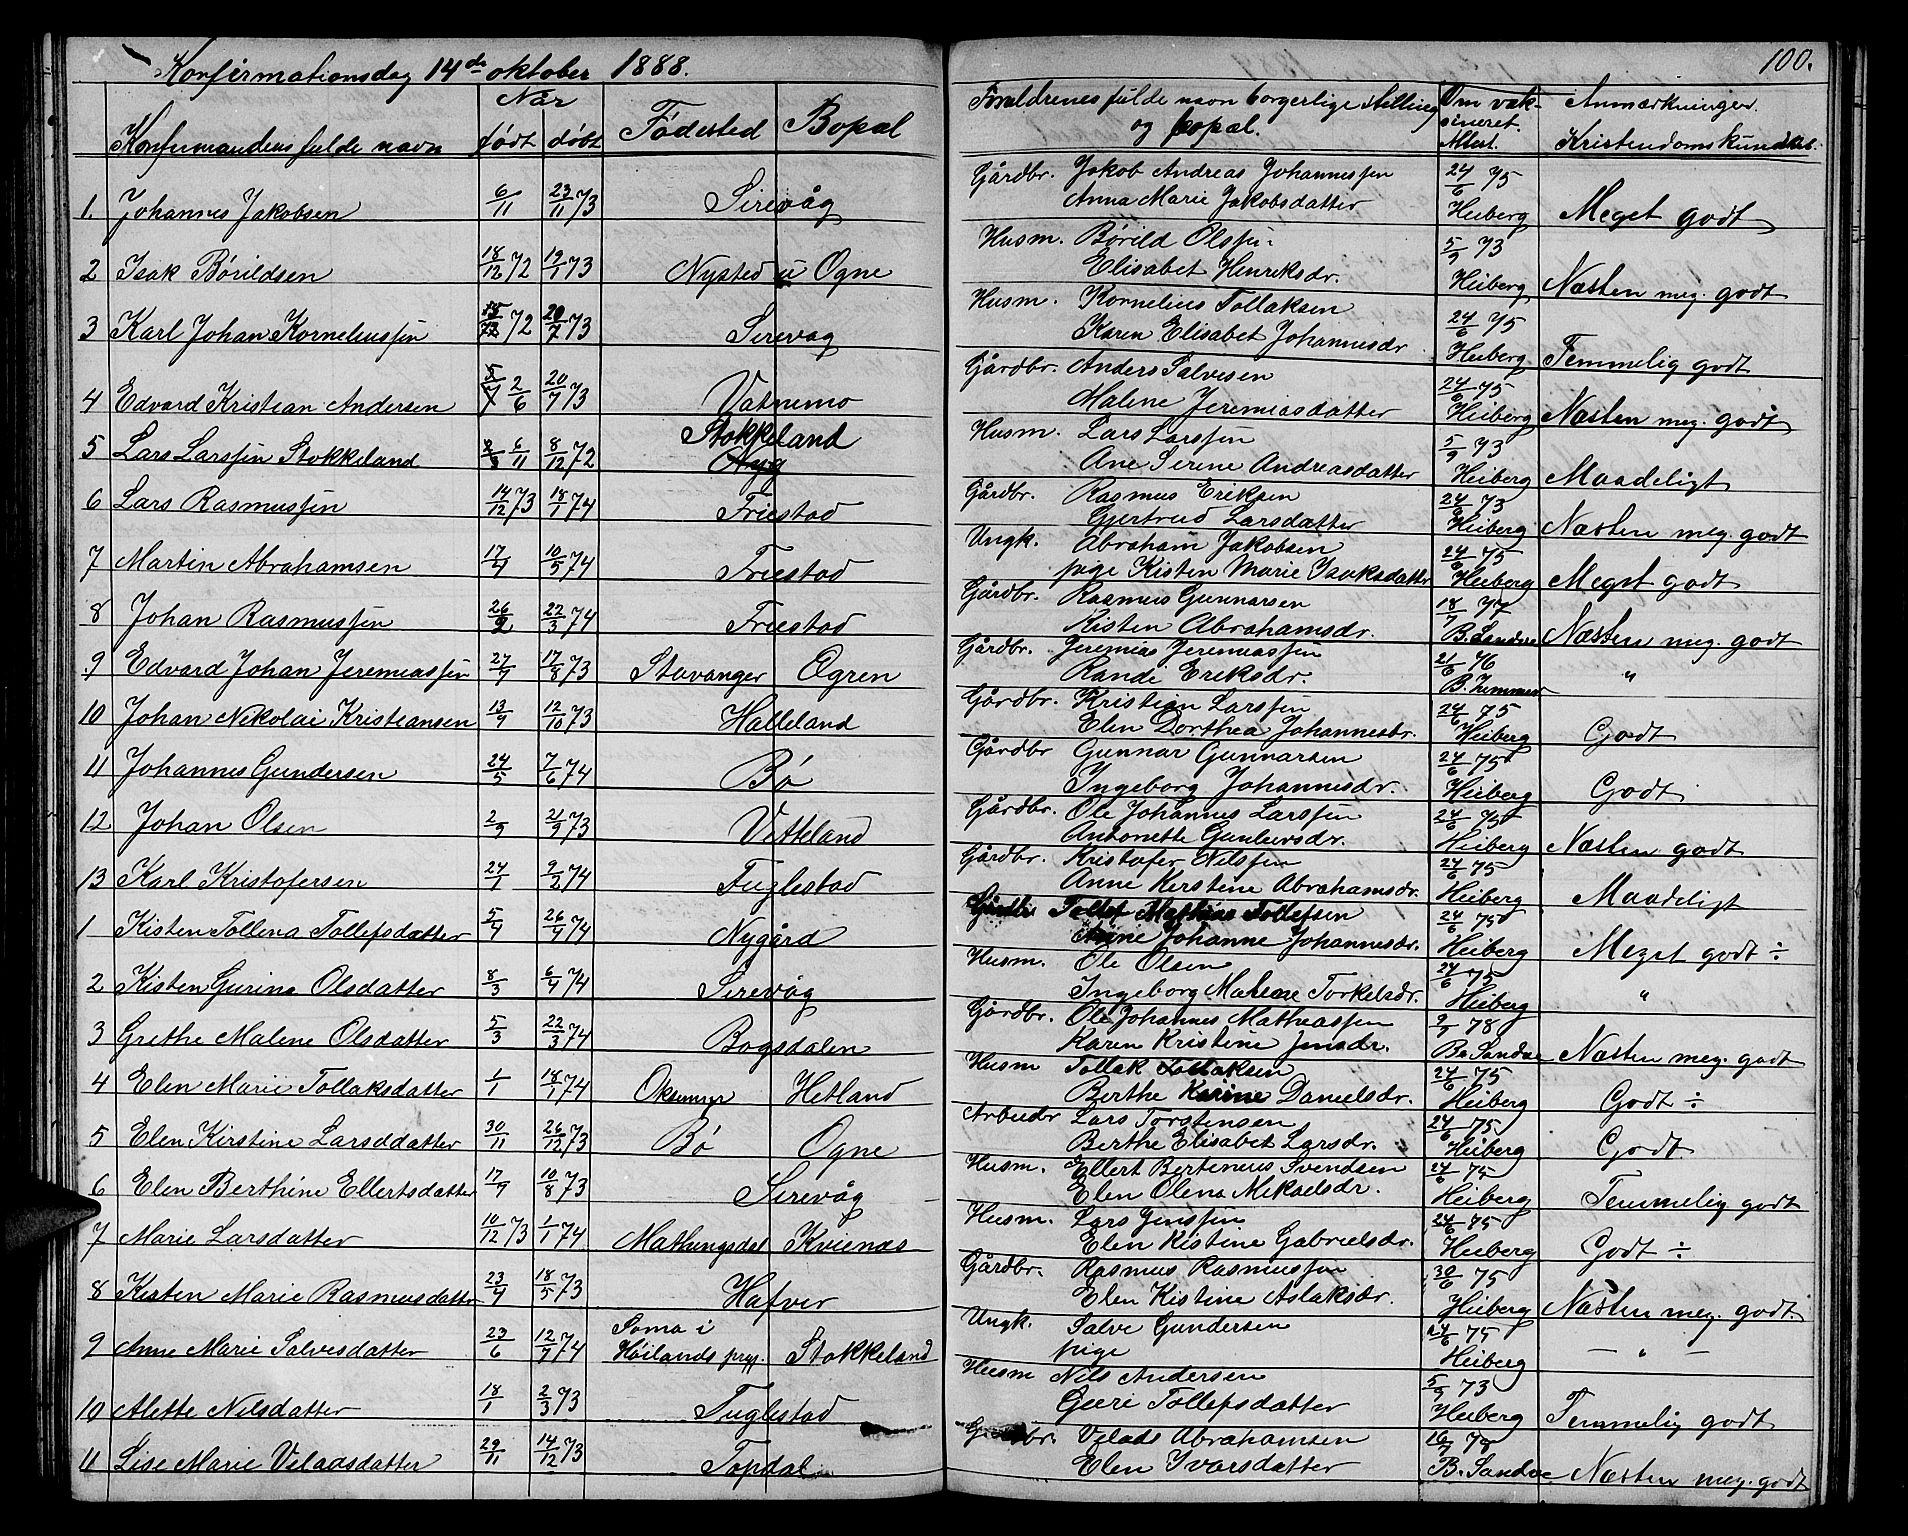 Konfirmationsdag 14de oktober 1888.
100.
Konfirmandens fulde navn
Når
født døbt
Fødested
Bopæl
Foreldrenes fulde navn borgerlige stilling
og bopæl.
Om vak-
sineret.
Attest.
Anmærkninger.
Kristendomskundskab.
1. Johannes Jakobsen 6/11 23/11 73 Sirevåg Gårdbr. Jakob Andreas Johannessen 24/6 75
Anna Marie Jakobsdatter Heiberg Meget godt
2 Isak Børildsen 18/12 72 19/1 73 Nysted u Ogne Husm. Børild Olsen 5/9 73
Elisabet Henriksdr. Heiberg Næsten meg. godt
3 Karl Johan Korneliussen 72 20/7 73 Sirevag Husm. Kornelius Tollaksen 24/6 75
Karen Elisabet Johannesdr Heiberg Temmelig godt
4 Edvard Kristian Andersen 2/6 20/7 73 Vatnemo Gårdbr. Anders Salvesen 24/6 75
Malene Jeremiasdatter Heiberg Næsten meg. godt
5 Lars Larssen Stokkeland 6/11 8/12 72 Stokkeland Husm. Lars Larssen 5/9 73
Nyg Ane Serine Andreasdatter Heiberg Maadeligt
6 Lars Rasmussen 14/12 73 18/1 74 Friestad Gårdbr. Rasmus Eriksen 24/6 73
Gjertrud Larsdatter Heiberg Næsten meg. godt
7 Martin Abrahamsen 17/4 10/5 74 Friestad Ungk. Abraham Jakobsen 24/6 75
pige Kisten Marie Isaksdatter Heiberg Meget godt
8 Johan Rasmussen 26/2 22/3 74 Friestad Gårdbr. Rasmus Gunnarsen 18/7 77
Kisten Abrahamsdr. B. Sandve Næsten meg. godt
9 Edvard Johan Jeremiassen 27/7 17/8 73 Stavanger Ogren Gårdbr. Jeremias Jeremiassen 21/6 76
Rande Eriksdr. B. "
10 Johan Nikolai Kristiansen 13/9 12/10 73 Halleland Gårdbr. Kristian Larssen 24/6 75
Elen Dorthea Johannesdr. Heiberg Godt
11 Johannes Gundersen 24/5 7/6 74 Bø Gårdbr Gunnar Gunnarsen 24/6 75
Ingeborg Johannesdr. Heiberg Godt
12 Johan Olsen 2/9 21/9 73 Vetteland Gårdbr. Ole Johannes Larssen 24/6 75
Antonette Heiberg Næsten godt
13 Karl Kristofersen 24/1 9/2 74 Fuglestad Gårdbr. Kristofer Nilssen 24/6 75
Anne Kerstine Abrahamsdr. Heiberg Maadeligt
1 Kisten Tollena Tollefsdatter 5/4 26/4 74 Nygård Gårdbr Tollef Mathias Tollefsen 24/6 75
Anne Johanne Johannesdr. Heiberg Meget godt ÷
2 Kisten Gurina Olsdatter 8/3 6/4 74 Sirevåg Husm. Ole Olsen 24/6 75
Ingeborg Malene Torkelsdr. Heiberg "
3 Grethe Malene Olsdatter 5/3 22/3 74 Bogsdalen Gårdbr. Ole Johannes Mathiassen 9/7 78
Karen Kristine Jensdr. Br Sandve Næsten meg. godt
4 Elen Marie Tollaksdatter 1/1 18/1 74 Hetland Husm Tollak Tollaksen 24/6 75
Berthe Karine Danielsdr. Heiberg Godt ÷
5 Elen Kirstine Larsddatter 30/11 26/12 73 Bø Ogne Arbeidr Lars Torstensen 24/6 75
Berthe Elisabet Larsdr. Heiberg Godt
6 Elen Berthine Ellertsdatter 17/7 10/8 73 Sirevåg Husm. Ellert Bertenius Svendsen 24/6 75
Elen Olena Mikaelsdr. Heiberg Temmelig godt
7 Marie Larsdatter 10/12 73 1/1 74 Mathingsdal Kvienæs Husm. Lars Jenssen 24/6 75
Elen Kistine Gabrielsdr. Heiberg Godt ÷
8 Kisten Marie Rasmusdatter 23/4 18/5 73 Hafver Gårdbr. Rasmus Rasmussen 30/6 75
Elen Kistine Aslaksdr. Heiberg Næsten meg. godt.
9 Anne Marie Salvesdatter 23/6 12/7 74 Soma i Høilands prgj. Stokkeland Ungk. Salve Gundersen 24/6 75
pige Heiberg — " —
10 Alette Nilsdatter 18/1 2/3 73 Fuglestad Husm Nils Andersen 5/9 73
Guri Tollefsdatter Heiberg Temmelig godt
11 Lise Marie Veladsdatter 29/11 14/12 73 Topdal Gårdbr. Velads Abrahamsen 16/7 78
Elen Ivarsdatter B. Sandve Næsten meg. godt